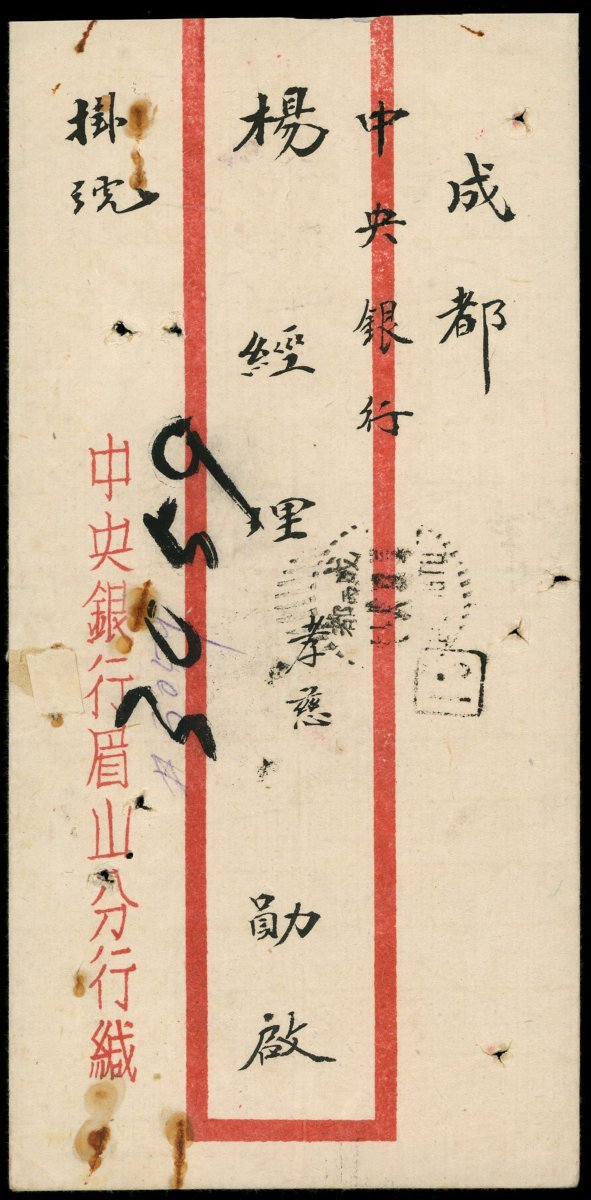 成都
中央銀行
楊經理孝慈勛啟
掛號
中央銀行眉山分行緘
2059
成都